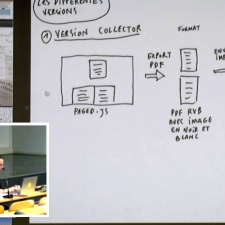 LES DIFFÉRENTES
VERSIONS
① VERSION COLLECTOR
FORMAT
EXPORT
PDF
PAGED.JS
PDF RVB
AVEC IMAGE
EN NOIR ET
BLANC